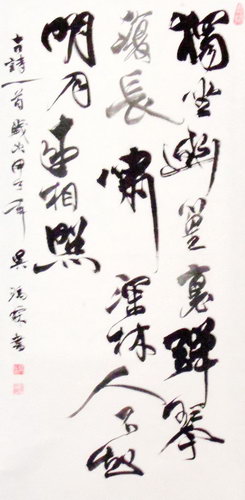 獨坐幽篁裏彈琴
復長嘯深林人不知
明月來相照
古詩一首歲次甲子年吳書